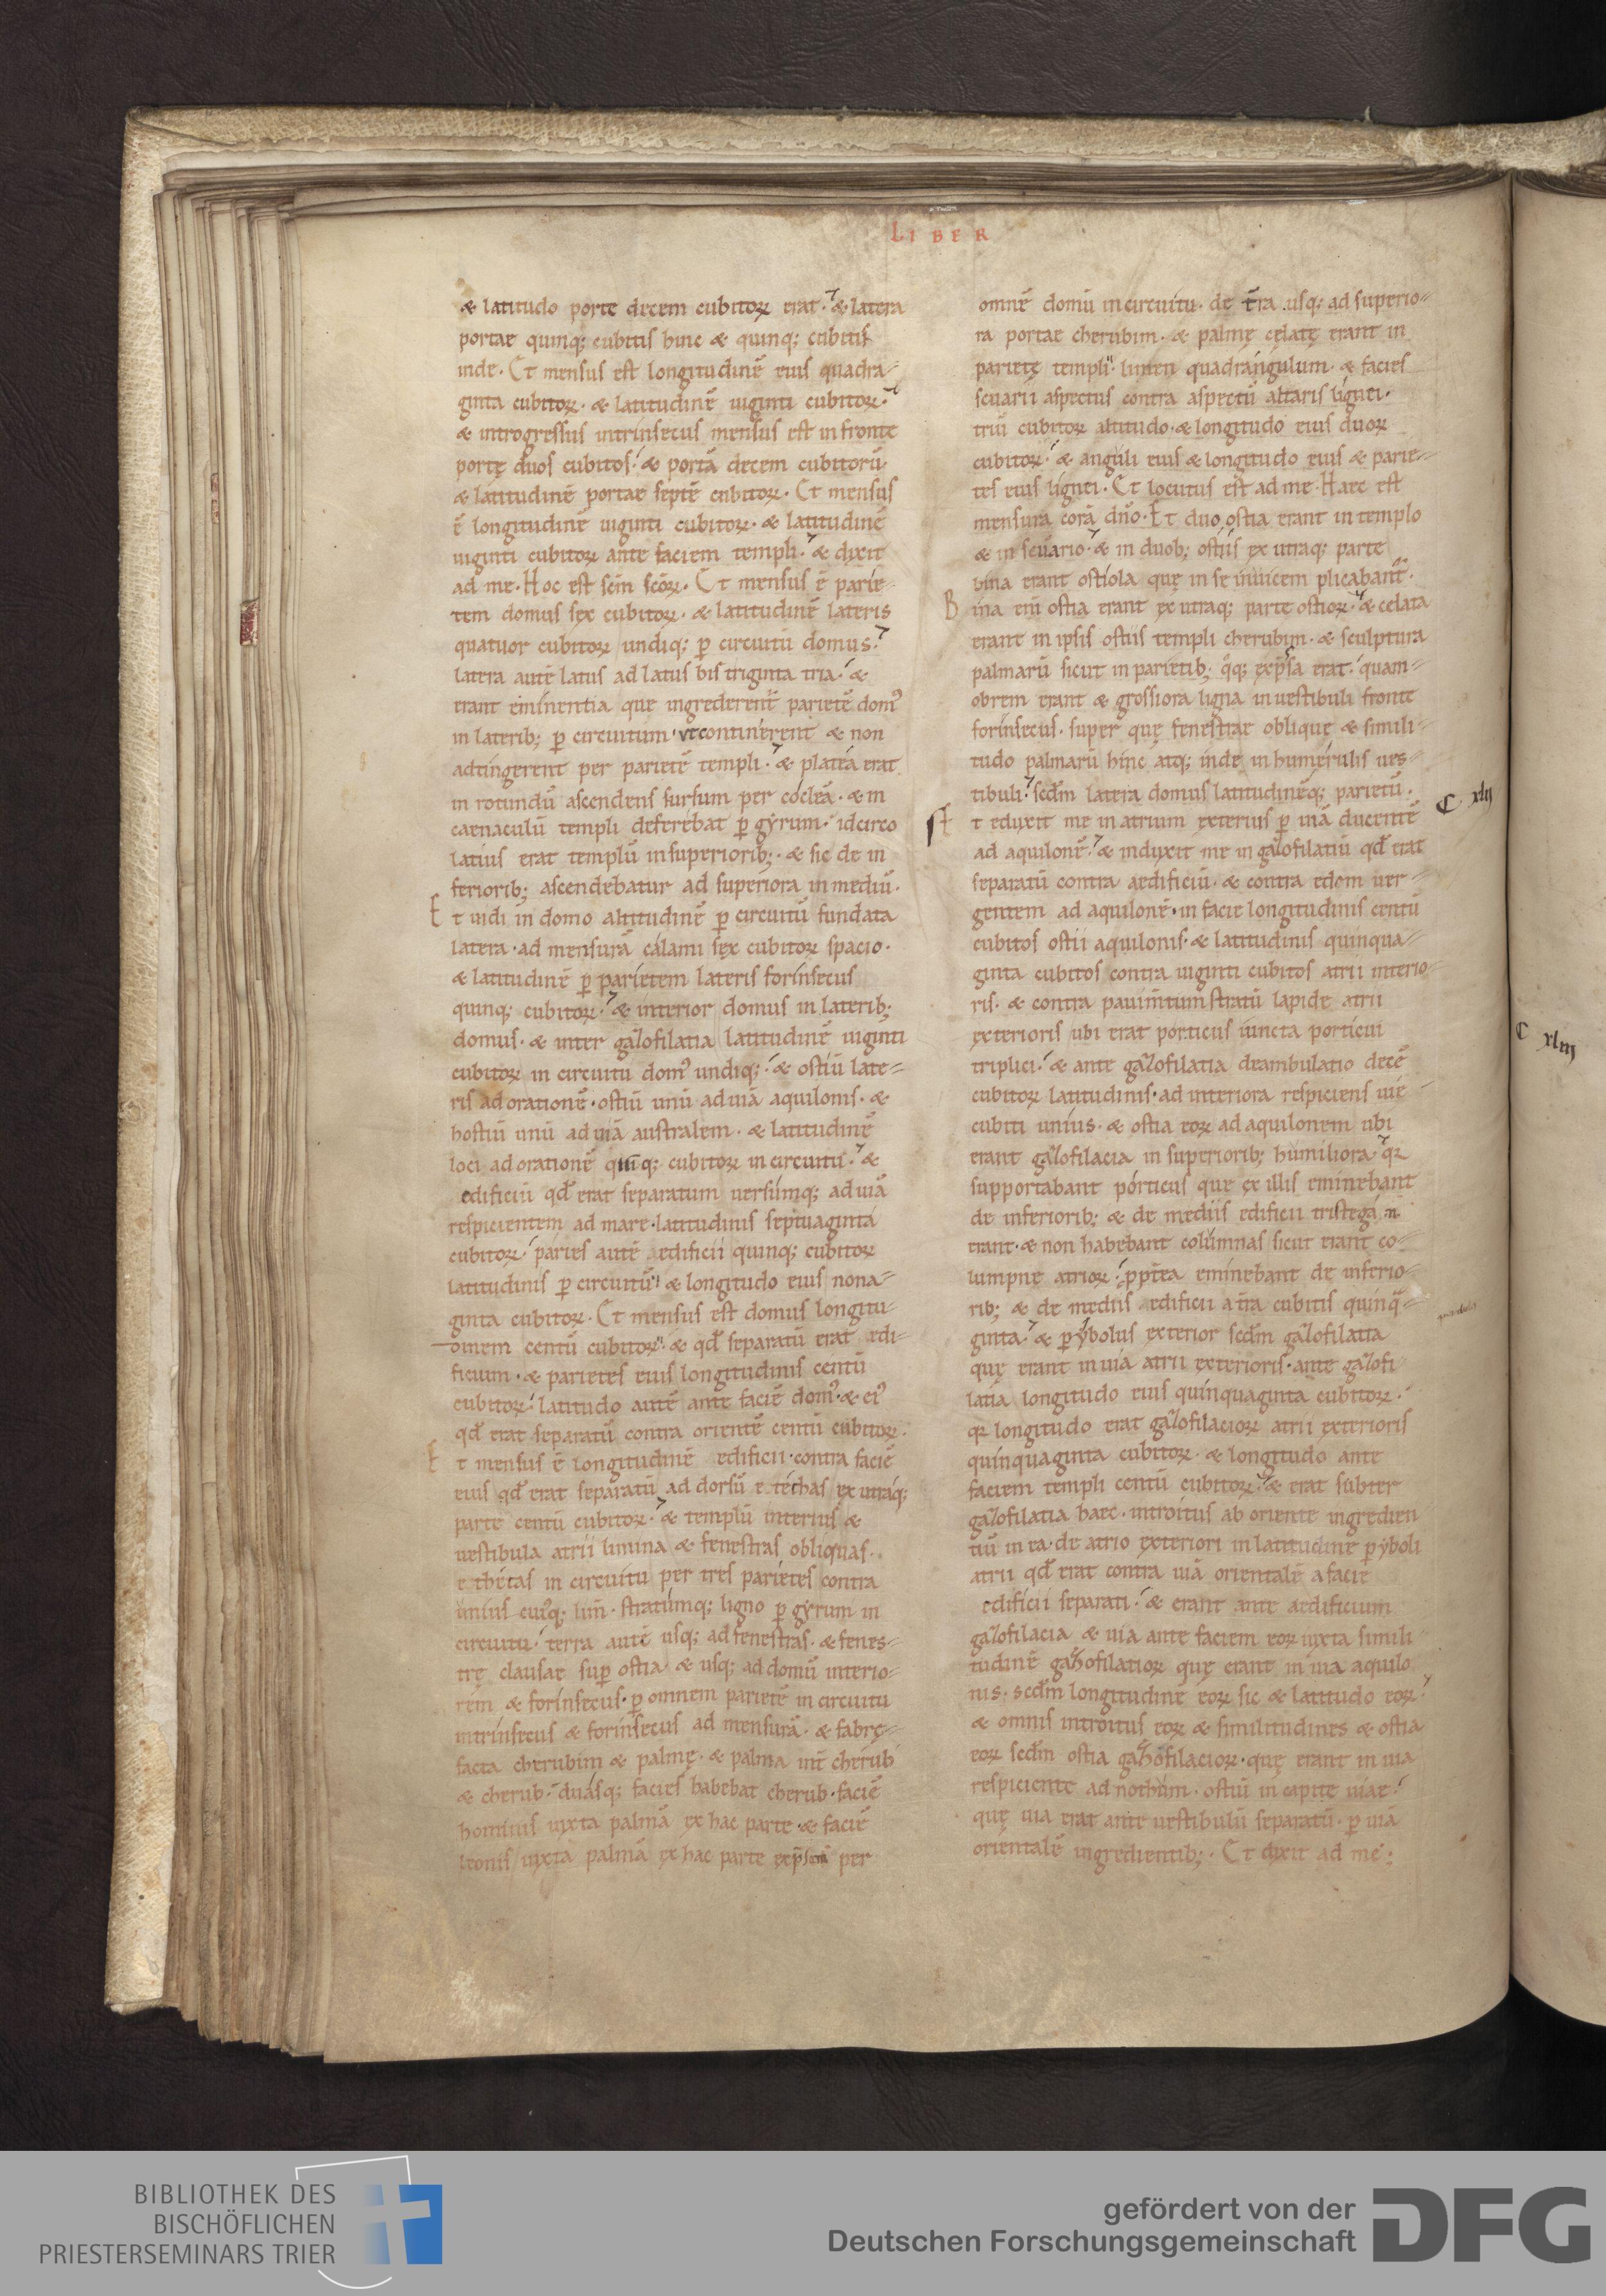 LIBER
& latitudo porte decem cubitoꝝ erat. & latera
portae quinq; cubitis hinc & quinq; cubitis
inde. Et mensus est longitudinē eius quadra-
ginta cubitoꝝ. & latitudinē uiginti cubitoꝝ.
& introgressus intrinsecus mensus est in fronte
portę duos cubitos. & portā decem cubitorū.
& latitudinē portae septē cubitoꝝ. Et mensus
ē longitudinē uiginti cubitoꝝ. & latitudinē
uiginti cubitoꝝ ante faciem templi. & dixit
ad me. Hoc est scm̄ scōꝝ. Et mensus ē parie-
tem domus sex cubitoꝝ. & latitudinē lateris
quatuor cubitoꝝ undiq; ꝑ circuitū domus.
latera autē latus ad latus bis triginta tria. &
erant eminentia que ingrederent̄ parietē domꝰ
in laterib; ꝑ circuitum. ut continerent & non
adtingerent per parietē templi. & platea erat
in rotundū ascendens sursum per cocleā. & in
caenaculū templi deferebat ꝑ gyrum. idcirco
latius erat templū in superiorib;. & sic de in
feriorib; ascendebatur ad superiora in mediū.
Et uidi in domo altitudinē ꝑ circuitū fundata
latera. ad mensurā calami sex cubitoꝝ spacio.
& latitudinē ꝑ parietem lateris forinsecus
quinq; cubitoꝝ. & interior domus in laterib;
domus. & inter gazofilatia latitudinē uiginti
cubitoꝝ in circuitu domꝰ undiq;. & ostiū late-
ris ad orationē. ostiū unū ad uiā aquilonis. &
hostiū unū ad uiā australem. & latitudinē
loci ad orationē quinq; cubitoꝝ in circuitu. &
edificiū qd̄ erat separatum uersumq; ad uiā
respicientem ad mare. latitudinis septuaginta
cubitoꝝ. paries autē edificii quinq; cubitoꝝ
latitudinis ꝑ circuitū. & longitudo eius nona-
ginta cubitoꝝ. Et mensus est domus longitu-
dinem centū cubitoꝝ. & qd̄ separatū erat edi-
ficium. & parietes eius longitudinis centū
cubitoꝝ. latitudo autē ante faciē domꝰ. & eiꝰ
qd̄ erat separatū contra orientē centū cubitoꝝ.
Et mensus ē longitudinē edificii. contra faciē
eius qd̄ erat separatū ad dorsū e techas ex utraq;
parte centū cubitoꝝ. & templū interius &
uestibula atrii limina & fenestras obliquas.
e thecas in circuitu per tres parietes contra
unius cuiꝰq; lim̄. stratumq; ligno ꝑ gyrum in
circuitu. terra autē usq; ad fenestras. & fenes-
trę clausae suꝑ ostia & usq; ad domū interio-
rem & forinsecus. ꝑ omnem parietē in circuitu
intrinsecus & forinsecus ad mensurā. & fabrę-
facta cherubim & palmę. & palma int̄ cherub
& cherub. duasq; facies habebat cherub. faciē
hominis iuxta palmā ex hac parte. & faciē
leonis iuxta palmā ex hac parte per
omnē domū in circuitu. de t̄ra usq; ad superio-
ra portae cherubim. & palmę cęlatę erant in
parietę templi. limen quadrangulum. & facies
scuarii aspectus contra aspectū altaris ligni.
triū cubitoꝝ altitudo. & longitudo eius duoꝝ
cubitoꝝ. & anguli eius & longitudo eius & parie-
tes eius ligni. Et locutus est ad me. Haec est
mensura corā dn̄o. Et duo ostia erant in templo
& in scuario. & in duob; ostiis ex utraq; parte
bina erant ostiola quę in se inuicem plicabant̄.
Bina eni ostia erant ex utraq; parte ostioꝝ. & celata
erant in ipsis ostiis templi cherubim. & sculptura
palmarū sicut in parietib; q̊q; exp̄ssa erat. quam-
obrem erant & grossiora ligna in uestibuli fronte
forinsecus. super quę fenestrae oblique & simili-
tudo palmarū hinc atq; inde in humerulis ues-
tibuli. scd̄m latera domus latitudinēq; parietū.
Et eduxit me in atrium exterius ꝑ uiā ducentē
C xlii
ad aquilonē. & induxit me in gazofilatiū qd̄ erat
separatū contra aedificiū. & contra edem uer-
gentem ad aquilonē. in facie longitudinis centū
cubitos ostii aquilonis. & latitudinis quinqua-
ginta cubitos contra uiginti cubitos atrii interio-
ris. & contra pauim̄tum stratū lapide atrii
exterioris ubi erat porticus iuncta porticui
triplici. & ante gazofilatia deambulatio decē
cubitoꝝ latitudinis. ad interiora respiciens uie
cubiti unius. & ostia eoꝝ ad aquilonem ubi
erant gazofilacia in superiorib; humiliora qꝛ
supportabant porticus que ex illis eminebant
de inferiorib; & de mediis edificii tristega n̄
erant. & non habebant columnas sicut erant co-
lumpnę atrioꝝ. ppt̄ea eminebant de inferio-
rib; & de mediis edificii a t̄ra cubitis quinq̄-
ginta. & ꝑybolus exterior scd̄m gazofilatia
quę erant in uia atrii exterioris. ante gazofi
latia longitudo eius quinquaginta cubitoꝝ.
qꝛ longitudo erat gazofilacioꝝ atrii exterioris
quinquaginta cubitoꝝ. & longitudo ante
faciem templi centū cubitoꝝ. & erat subter
gazofilatia haec. introitus ab oriente ingredien
tiū in ea. de atrio exteriori in latitudine ꝑyboli
atrii qd̄ erat contra uiā orientalē a facie
edificii separati. & erant ante aedificium
gazofilacia & uia ante faciem eoꝝ iuxta simili
tudinē gazofilatioꝝ quę erant in uia aquilo
nis. scd̄m longitudinē eoꝝ sic & latitudo eoꝝ.
& omnis introitus eoꝝ & similitudines & ostia
eoꝝ scd̄m ostia gazofilacioꝝ. quę erant in uia
respiciente ad nothum. ostiū in capite uiae.
quę uia erat ante uestibulū separatū. ꝑ uiā
orientalē ingredientib;. Et dixit ad me.
C xliii
BIBLIOTHEK DES
BISCHÖFLICHEN
PRIESTERSEMINARS TRIER
gefördert von der
Deutschen Forschungsgemeinschaft
DFG